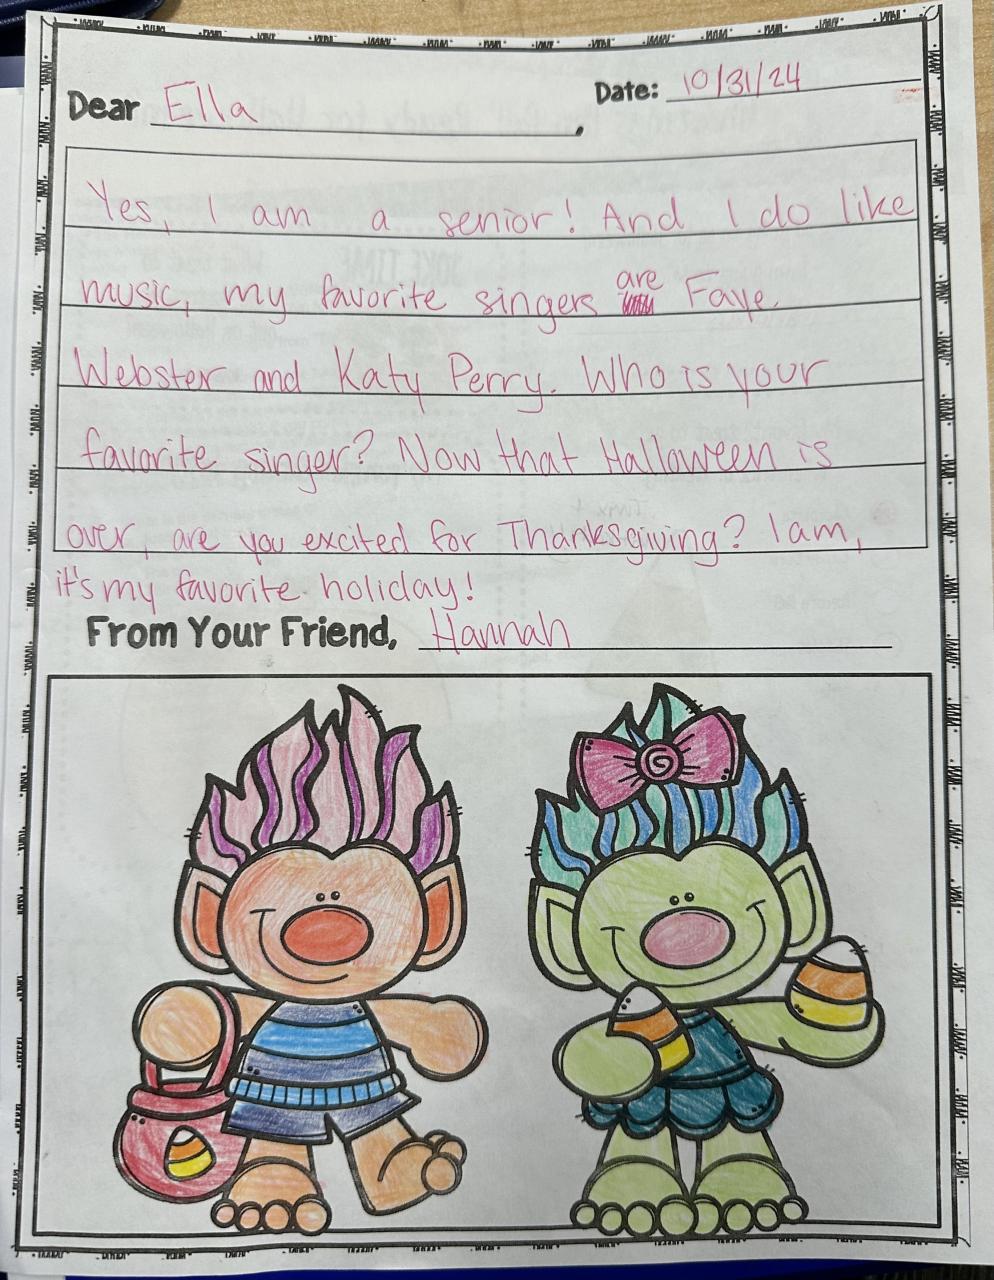 Dear Ella,
Date: 10/31/24
Yes, I am a senior! And I do like
music, my favorite singers are Faye
Webster and Katy Perry. Who is your
favorite singer? Now that Halloween is
over, are you excited for Thanksgiving? I am,
it's my favorite holiday!
From Your Friend, Hannah